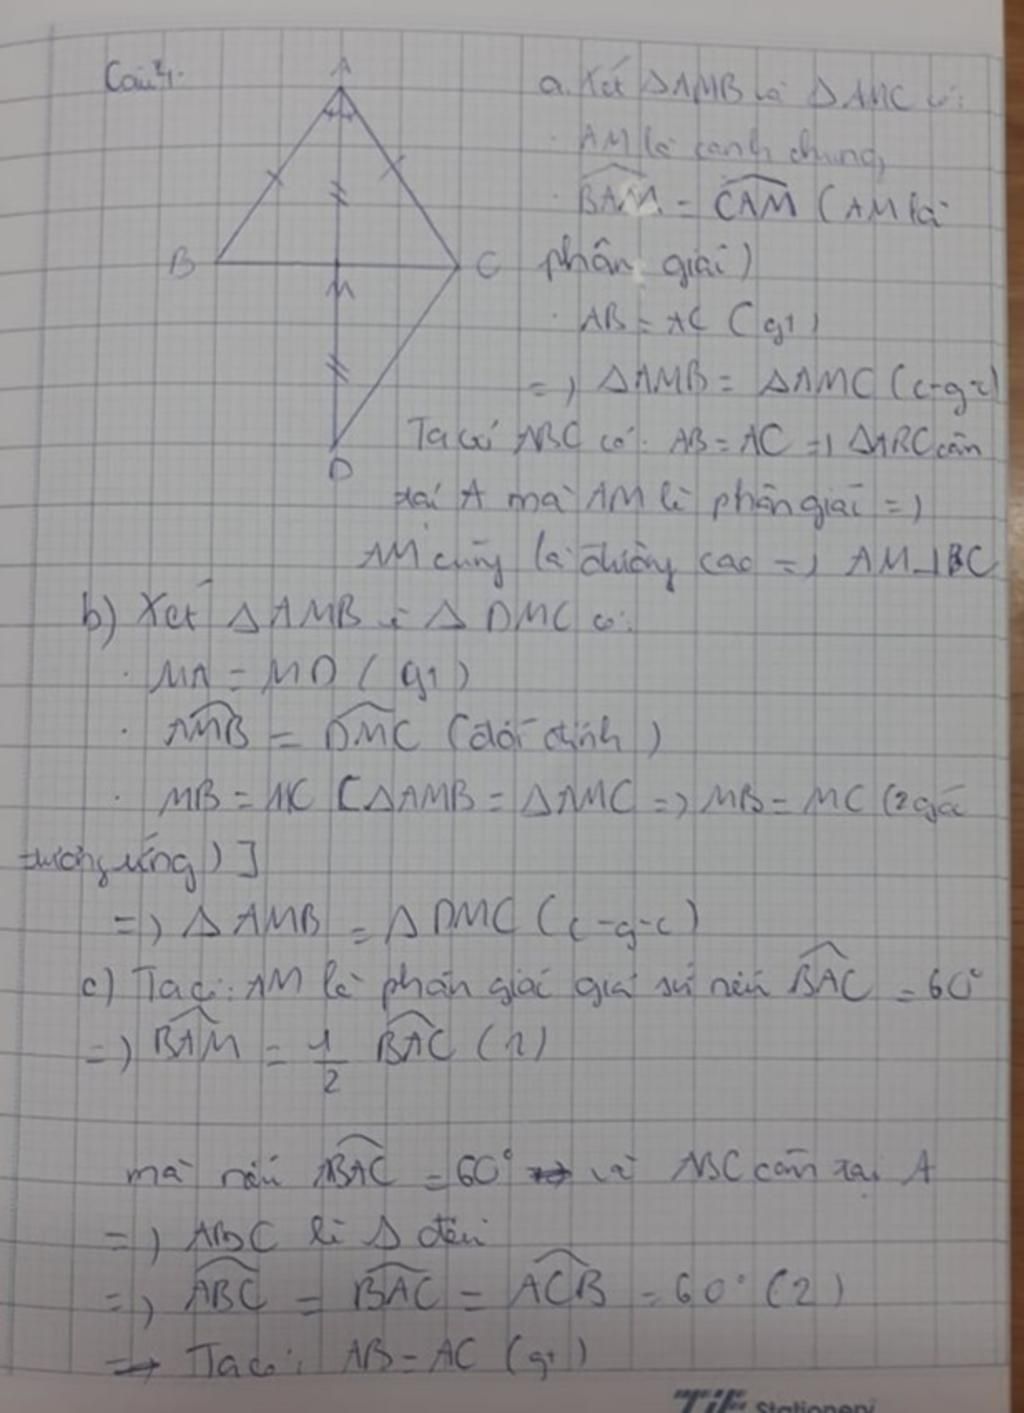 Câu 4.
A
B
C
M
D
a. Xét ΔAMB và ΔAMC có:
· AM là cạnh chung
· BAM = CAM (AM là
phân giác)
· AB = AC (gt)
=> ΔAMB = ΔAMC (c-g-c)
Ta có ABC có: AB = AC => ΔABC cân
tại A mà AM là phân giác =>
AM cũng là đường cao => AM⊥BC
b) Xét ΔAMB và ΔDMC có:
· MA = MD (gt)
· AMB = DMC (đối đỉnh)
· MB = MC [ΔAMB = ΔAMC => MB = MC (2
tương ứng)]
=> ΔAMB = ΔDMC (c-g-c)
c) Ta có: AM là phân giác giả sử nếu BAC = 60°
=> BAM = 1/2 BAC (1)
mà nếu BAC = 60° và ABC cân tại A
=> ABC là Δ đều
=> ABC = BAC = ACB = 60° (2)
→ Ta có: AB = AC (gt)
TiE Stationeri